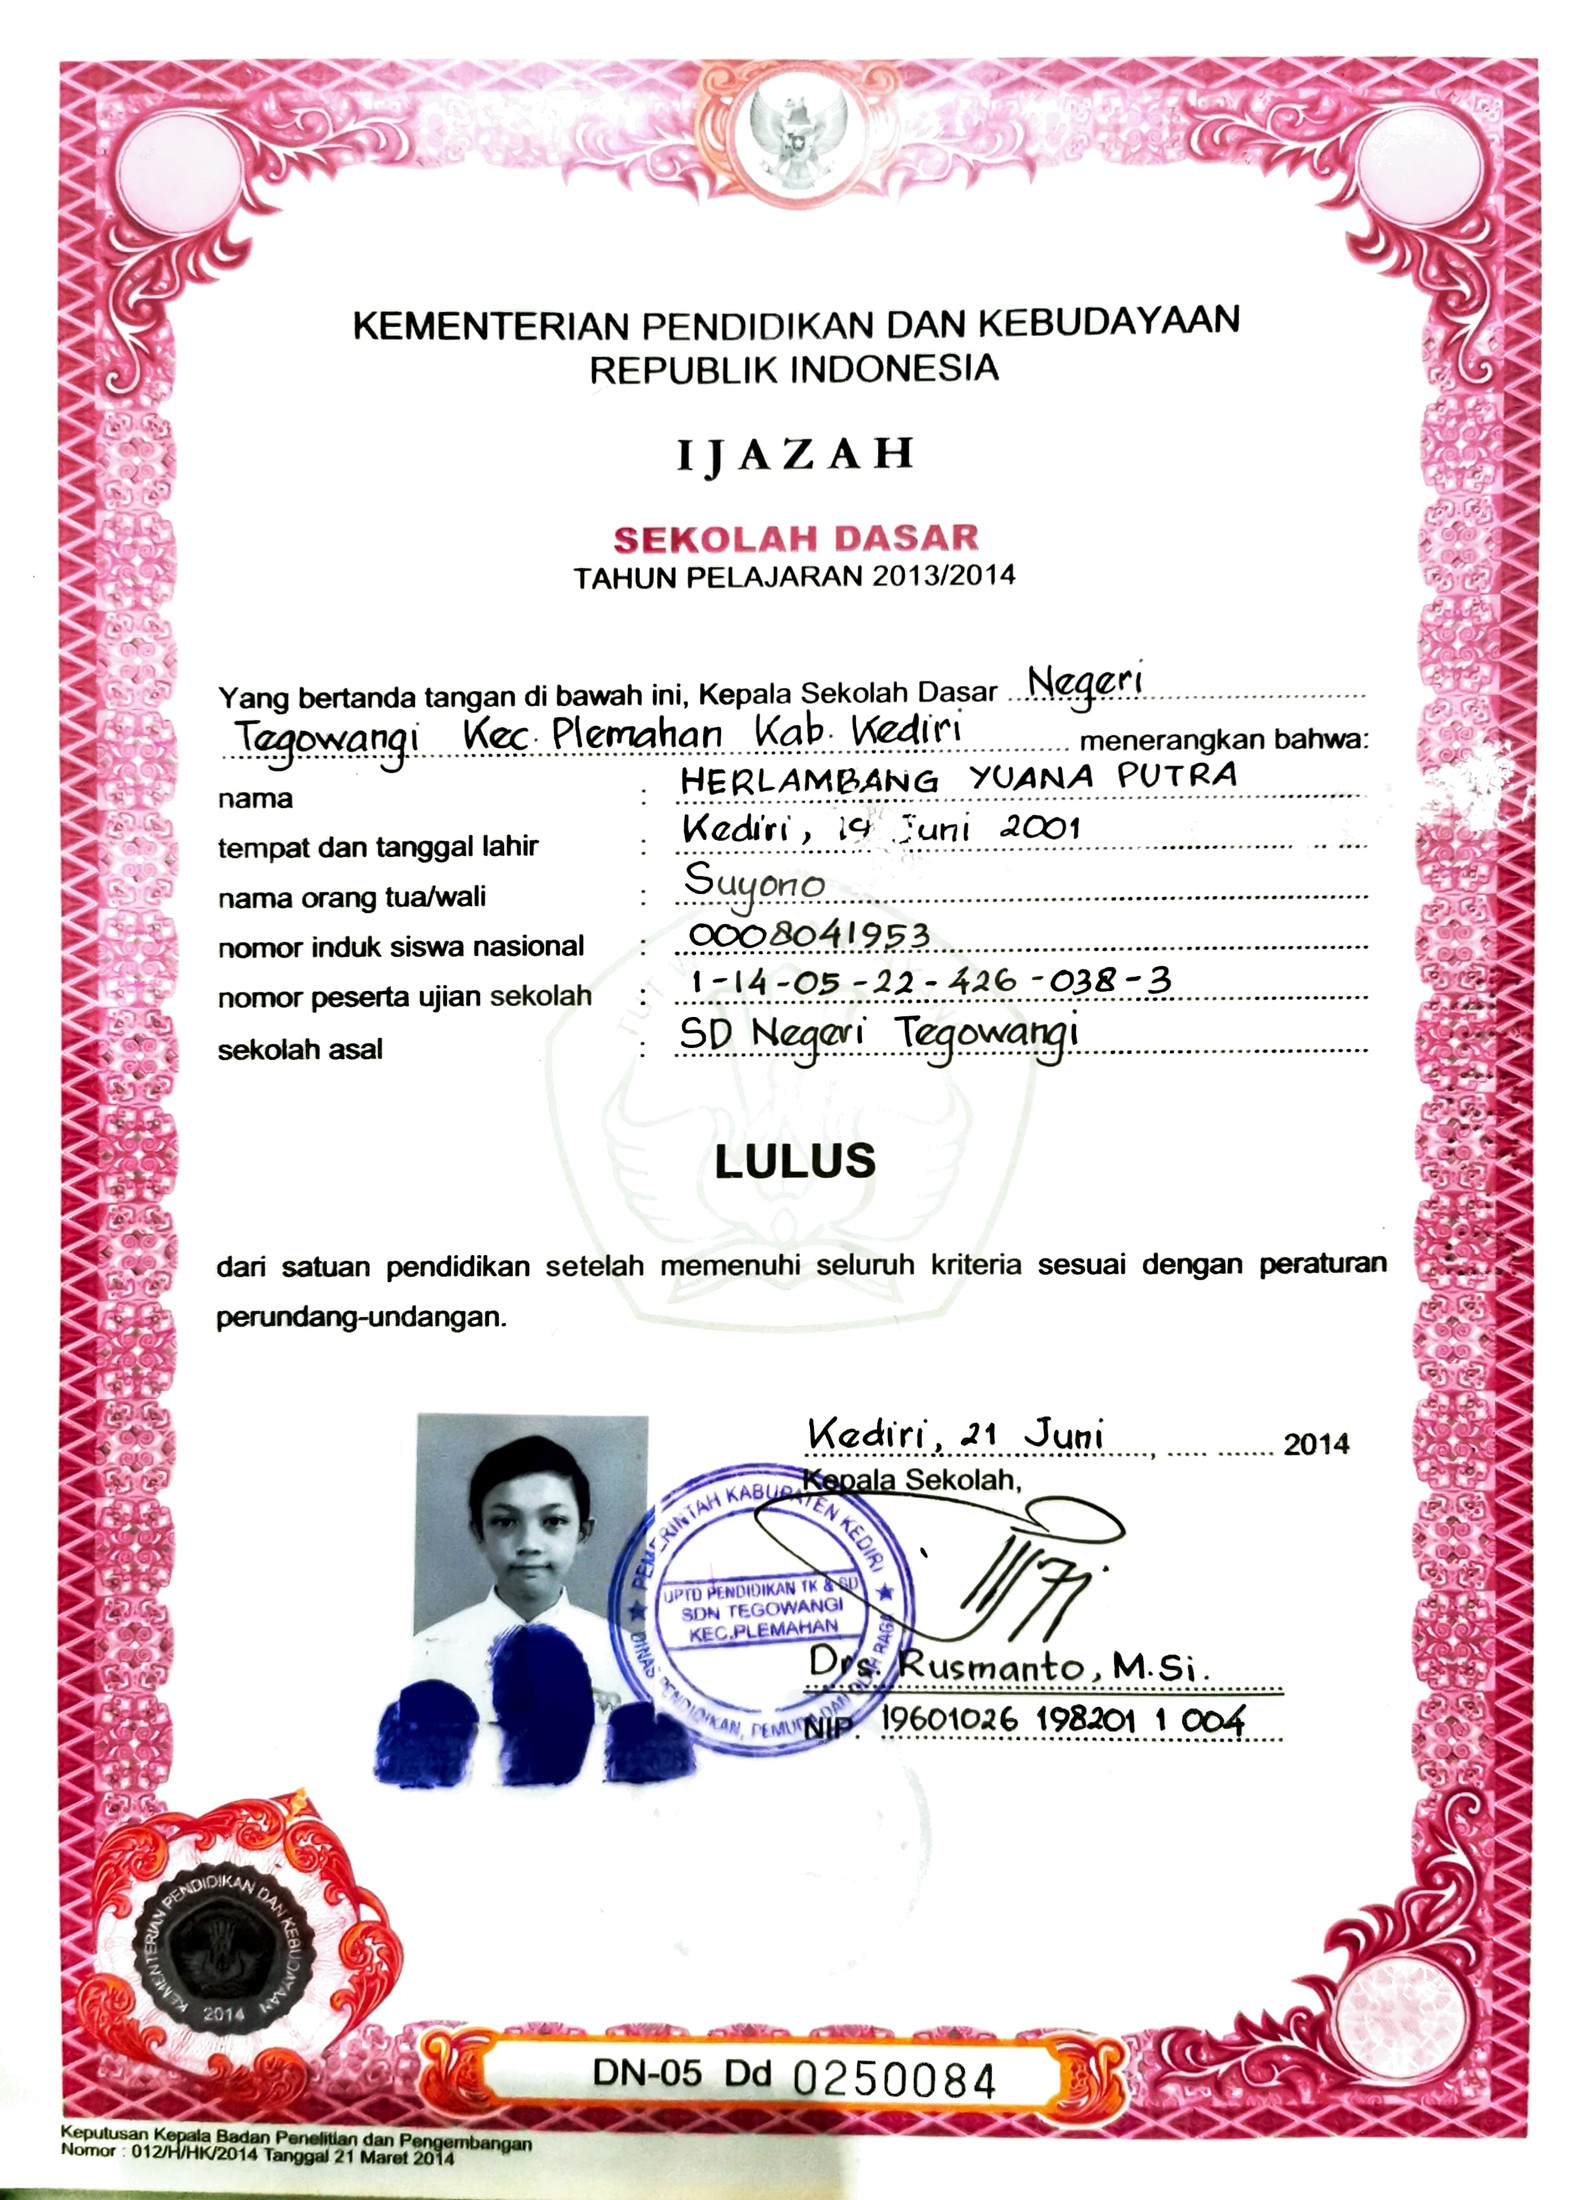 KEMENTERIAN PENDIDIKAN DAN KEBUDAYAAN
REPUBLIK INDONESIA
IJAZAH
SEKOLAH DASAR
TAHUN PELAJARAN 2013/2014
Yang bertanda tangan di bawah ini, Kepala Sekolah Dasar Negeri
Tegowangi Kec. Plemahan Kab. Kediri menerangkan bahwa:
nama : HERLAMBANG YUANA PUTRA
tempat dan tanggal lahir : Kediri, Juni 2001
nama orang tua/wali : Suyono
nomor induk siswa nasional : 0008041953
nomor peserta ujian sekolah : 1-14-05-22-426-038-3
sekolah asal : SD Negeri Tegowangi
LULUS
dari satuan pendidikan setelah memenuhi seluruh kriteria sesuai dengan peraturan
perundang-undangan.
Kediri, 21 Juni, 2014
Kepala Sekolah,
PEMERINTAH KABUPATEN KEDIRI
UPTD PENDIDIKAN TK & SD
SDN TEGOWANGI
KEC.PLEMAHAN
DINAS PENDIDIKAN, PEMUDA DAN OLAH RAGA
Drs. Rusmanto, M.Si.
NIP. 19601026 198201 1 004
KEMENTERIAN PENDIDIKAN DAN KEBUDAYAAN
2014
DN-05 Dd 0250084
Keputusan Kepala Badan Penelitian dan Pengembangan
Nomor : 012/H/HK/2014 Tanggal 21 Maret 2014